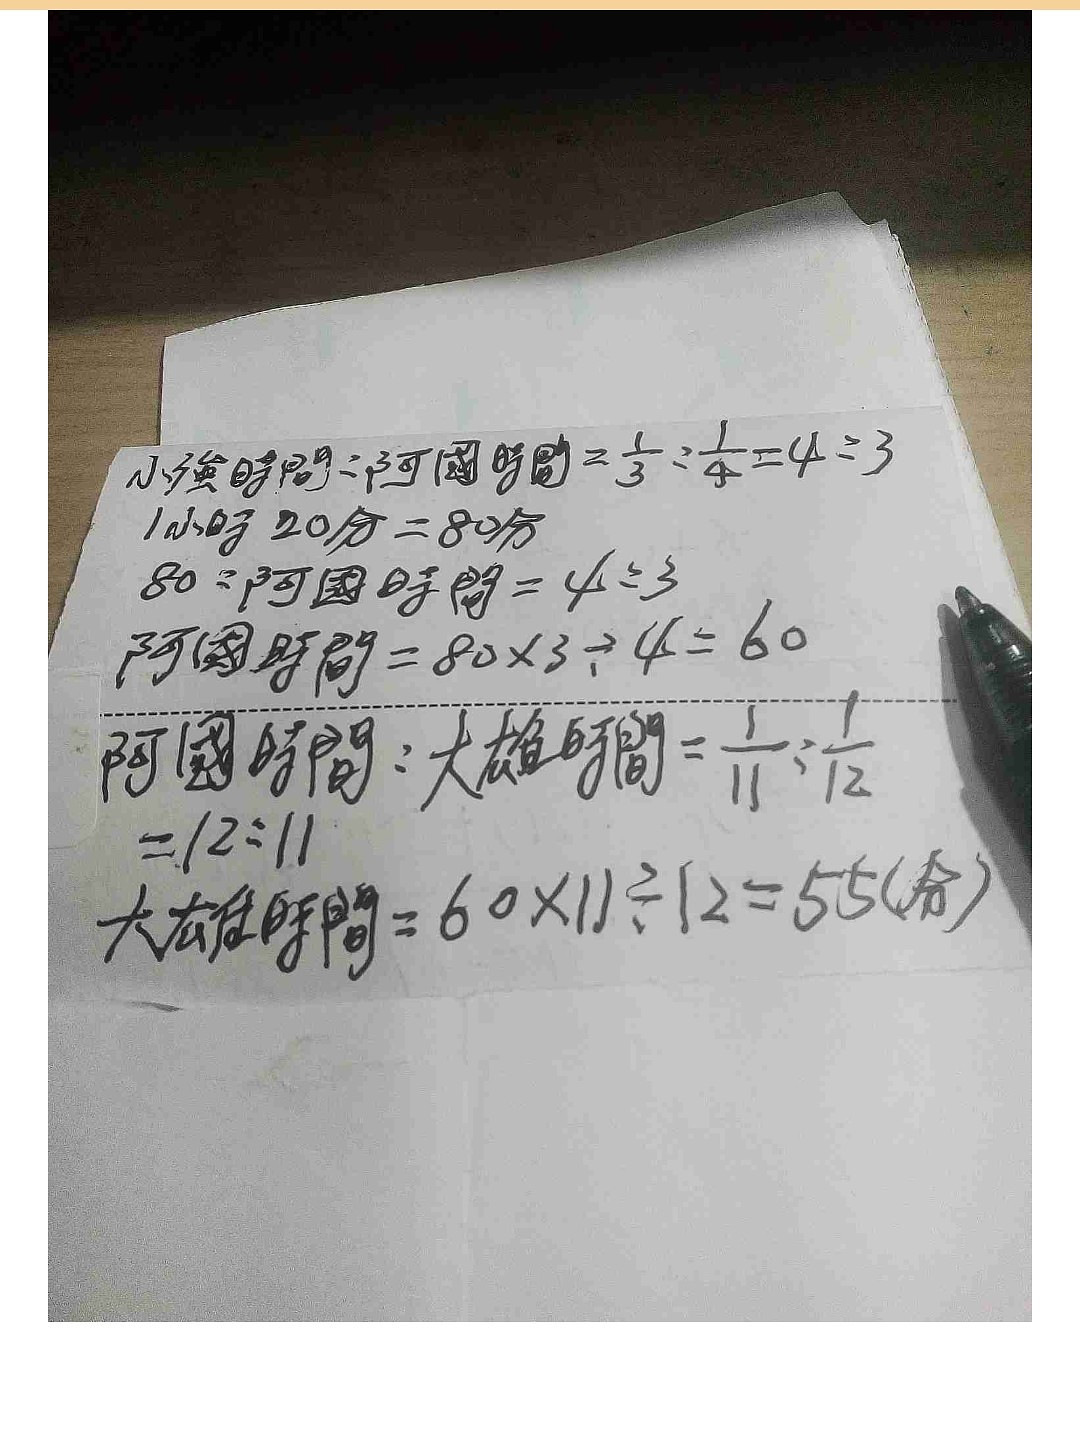 小強時間:阿國時間=1/3:1/4=4:3
1小時20分=80分
80:阿國時間=4:3
阿國時間=80×3÷4=60
阿國時間:大雄時間=1/11:1/12
=12:11
大雄時間=60×11÷12=55(分)